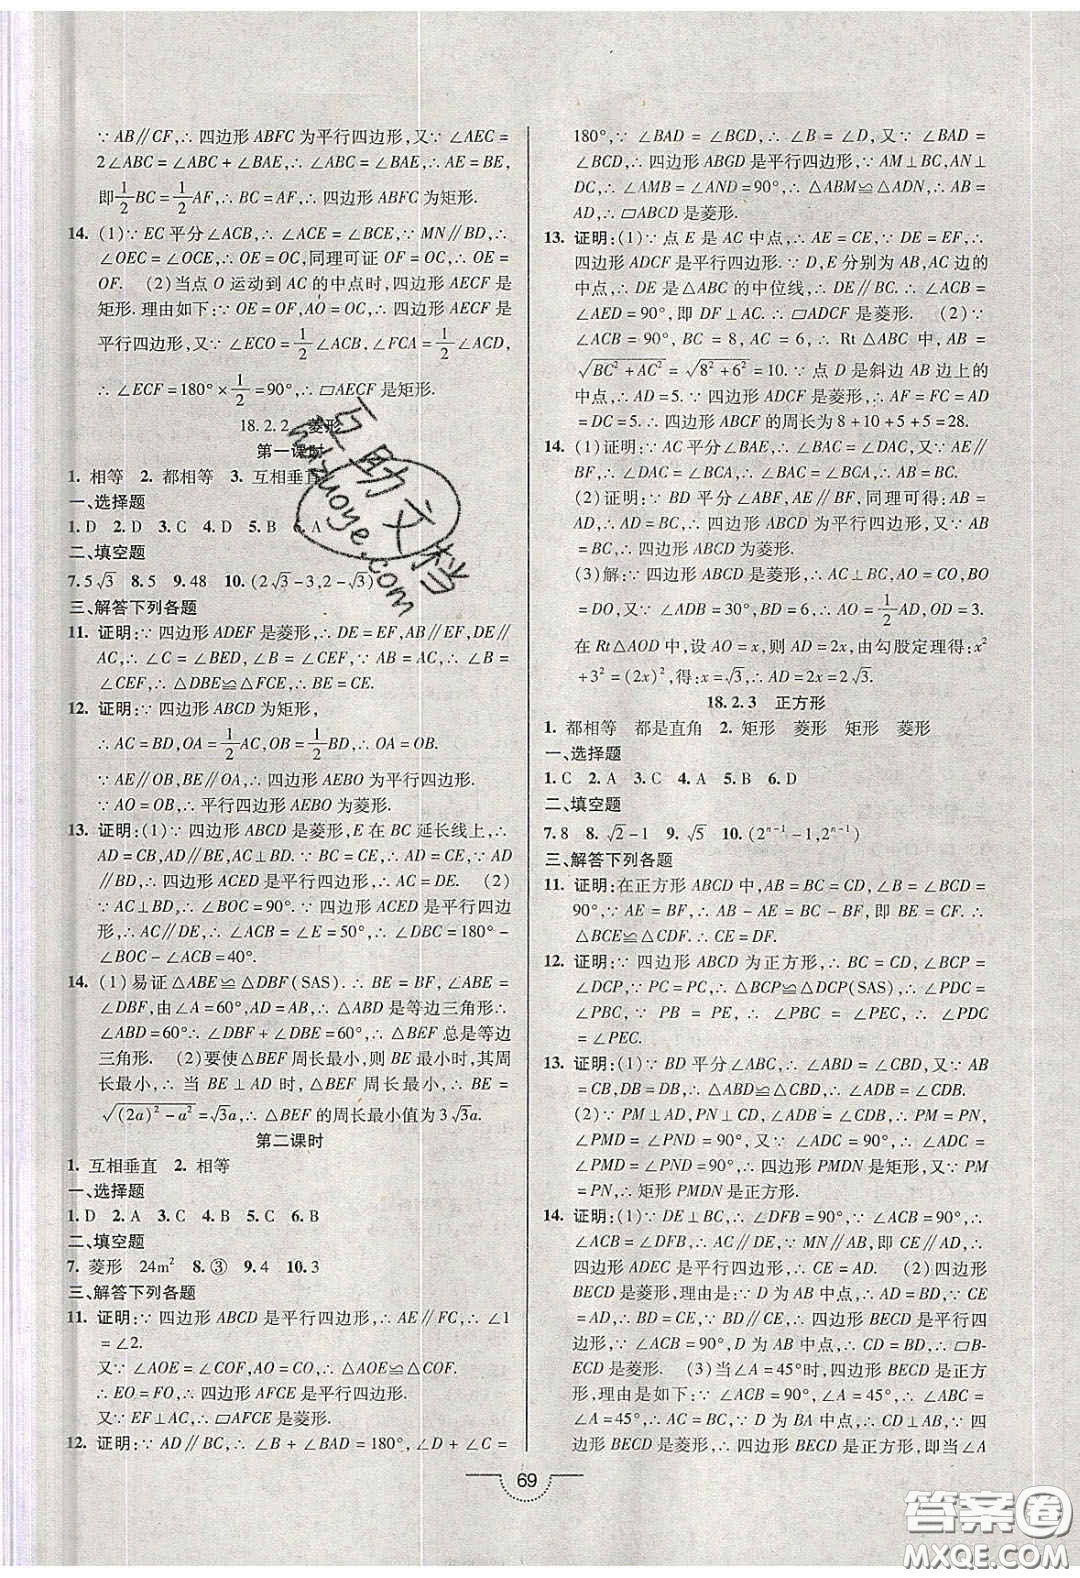 ∵ AB∥CF,∴ 四边形 ABFC 为平行四边形,又∵ ∠AEC =
2∠ABC = ∠ABC + ∠BAE,∴ ∠ABC = ∠BAE,∴ AE = BE,
即1/2BC = 1/2AF,∴ BC = AF,∴ 四边形 ABFC 为矩形.
14. (1)∵ EC 平分∠ACB,∴ ∠ACE = ∠BCE,∵ MN∥BD,∴
∠OEC = ∠OCE,∴ OE = OC,同理可证 OF = OC,∴ OE =
OF. (2)当点 O 运动到 AC 的中点时,四边形 AECF 是
矩形. 理由如下:∵ OE = OF,AO = OC,∴ 四边形 AECF 是
平行四边形,又∵ ∠ECO = 1/2∠ACB,∠FCA = 1/2∠ACD,
∴ ∠ECF = 180° × 1/2 = 90°,∴ ▱AECF 是矩形.
18.2.2 菱形
第一课时
1. 相等 2. 都相等 3. 互相垂直
一、选择题
1. D 2. D 3. C 4. D 5. B 6. A
二、填空题
7. 5√3 8. 5 9. 48 10. (2√3-3,2-√3)
三、解答下列各题
11. 证明:∵ 四边形 ADEF 是菱形,∴ DE = EF,AB∥EF,DE∥
AC,∴ ∠C = ∠BED,∠B = ∠CEF,∵ AB = AC,∴ ∠B =
∠CEF,∴ △DBE≌△FCE,∴ BE = CE.
12. 证明:∵ 四边形 ABCD 为矩形,
∴ AC = BD,OA = 1/2AC,OB = 1/2BD,∴ OA = OB.
∵ AE∥OB,BE∥OA,∴ 四边形 AEBO 为平行四边形.
∵ AO = OB,∴ 平行四边形 AEBO 为菱形.
13. 证明:(1)∵ 四边形 ABCD 是菱形,E 在 BC 延长线上,∴
AD = CB,AD∥BE,AC⊥BD. ∵ DE⊥BD,∴ ∠E = ∠ACB,∴ AC∥DE. ∵ AD
∥BD,∴ 四边形 ACED 是平行四边形,∴ AC = DE. (2)
∵ AC⊥BD,∴ ∠BOC = 90°. ∵ 四边形 ACED 是平行四边
形,∴ AC∥DE,∴ ∠ACB = ∠E = 50°,∴ ∠DBC = 180° -
∠BOC - ∠ACB = 40°.
14. (1)易证△ABE≌△DBF(SAS). ∴ BE = BF,∠ABE =
∠DBF,由∠A = 60°,AD = AB,∴ △ABD 是等边三角形∴
∠ABD = 60°∴ ∠DBF + ∠DBE = 60°,∴ △BEF 总是等边
三角形. (2)要使△BEF 周长最小,则 BE 最小时,其周
长最小,∴ 当 BE⊥AD 时,△BEF 周长最小,∴ BE =
√((2a)²-a²) = √3a,∴ △BEF 的周长最小值为 3√3a.
第二课时
1. 互相垂直 2. 相等
一、选择题
1. D 2. A 3. C 4. B 5. C 6. B
二、填空题
7. 菱形 24m² 8. ③ 9. 4 10. 3
三、解答下列各题
11. 证明:∵ 四边形 ABCD 是平行四边形,∴ AE∥FC,∴ ∠1
= ∠2.
又∵ ∠AOE = ∠COF,AO = CO,∴ △AOE≌△COF.
∴ EO = FO,∴ 四边形 AFCE 是平行四边形.
又∵ EF⊥AC,∴ ▱AFCE 是菱形.
12. 证明:∵ AD∥BC,∴ ∠B + ∠BAD = 180°,∠D + ∠C =
180°,∵ ∠BAD = ∠BCD,∴ ∠B = ∠D,又∵ ∠BAD =
∠BCD,∴ 四边形 ABCD 是平行四边形. ∵ AM⊥BC,AN⊥
DC,∴ ∠AMB = ∠AND = 90°,∴ △ABM≌△ADN,∴ AB =
AD,∴ ▱ABCD 是菱形.
13. 证明:(1)∵ 点 E 是 AC 中点,∴ AE = CE,∵ DE = EF,∴
四边形 ADCF 是平行四边形. ∵ D,E 分别为 AB,AC 边的
中点,∴ DE 是△ABC 的中位线,∴ DE∥BC,∴ ∠ACB =
∠AED = 90°,即 DF⊥AC. ∴ ▱ADCF 是菱形. (2)∵
∠ACB = 90°, BC = 8, AC = 6, ∴ Rt△ABC 中, AB =
√(BC²+AC²) = √(8²+6²) = 10. ∵ 点 D 是斜边 AB 边上的
中点,∴ AD = 5. ∵ 四边形 ADCF 是菱形,∴ AF = FC = AD
= DC = 5. ∴ 四边形 ABCF 的周长为 8 + 10 + 5 + 5 = 28.
14. (1)证明:∵ AC 平分∠BAE,∴ ∠BAC = ∠DAC,又∵ AE∥
BF,∴ ∠DAC = ∠BCA,∴ ∠BAC = ∠BCA,∴ AB = BC.
(2)证明:∵ BD 平分∠ABF,AE∥BF,同理可得:AB =
AD. ∴ AD = BC,∴ 四边形 ABCD 为平行四边形. ∵ AB =
BC,∴ 四边形 ABCD 为菱形.
(3)解:∵ 四边形 ABCD 是菱形,∴ AC⊥BD,AO = CO,BO =
DO,又∵ ∠ADB = 30°,BD = 6,∴ AO = 1/2AD,OD = 3.
在 Rt△AOD 中,设 AO = x,则 AD = 2x,由勾股定理得:x²
+3² = (2x)²,解得:x = √3,∴ AD = 2x = 2√3.
18.2.3 正方形
1. 都相等 都是直角 2. 矩形 菱形 矩形 菱形
一、选择题
1. C 2. A 3. C 4. A 5. B 6. D
二、填空题
7. 8 8. √2-1 9. √5 10. (2ⁿ⁻¹-1,2ⁿ⁻¹)
三、解答下列各题
11. 证明:在正方形 ABCD 中,AB = BC = CD,∠B = ∠BCD =
90°,∵ AE = BF,∴ AB - AE = BC - BF,即 BE = CF. ∴
△BCE≌△CDF. ∴ CE = DF.
12. 证明:∵ 四边形 ABCD 为正方形,∴ BC = CD,∠BCP =
∠DCP,∵ PC = PC,∴ △BCP≌△DCP(SAS),∴ ∠PDC =
∠PBC, ∵ PB = PE, ∴ ∠PBC = ∠PEC, ∴ ∠PDC
= ∠PEC.
13. 证明:(1)∵ BD 平分∠ABC,∴ ∠ABD = ∠CBD,又∵ AB
= CB,DB = DB,∴ △ABD≌△CBD,∴ ∠ADB = ∠CDB.
(2)∵ PM⊥AD,PN⊥CD,∠ADB = ∠CDB,∴ PM = PN,
∠PMD = ∠PND = 90°,又∵ ∠ADC = 90°,∴ ∠ADC =
∠PMD = ∠PND = 90°,∴ 四边形 PMDN 是矩形,又∵ PM
= PN,∴ 矩形 PMDN 是正方形.
14. 证明:(1)∵ DE⊥BC,∴ ∠DFB = 90°,∵ ∠ACB = 90°,∴
∠ACB = ∠DFB,∴ AC∥DE,∵ MN∥AB,即 CE∥AD,∴ 四边
形 ADEC 是平行四边形,∴ CE = AD. (2)四边形
BECD 是菱形,理由是:∵ D 为 AB 中点,∴ AD = BD,∵ CE
= AD,∴ BD = CE,∵ BD∥CE,∴ 四边形 BECD 是平行四
边形,∵ ∠ACB = 90°,D 为 AB 中点,∴ CD = BD,∴ ▱B-
ECD 是菱形. (3)当∠A = 45°时,四边形 BECD 是正方
形,理由是如下:∵ ∠ACB = 90°,∠A = 45°,∴ ∠ABC =
∠A = 45°,∴ AC = BC,∵ D 为 BA 中点,∴ CD⊥AB,∵ 四
边形 BECD 是菱形,∴ 四边形 BECD 是正方形,即当∠A
69
互助文档
huzuoye.com
答案圈
MXQE.COM